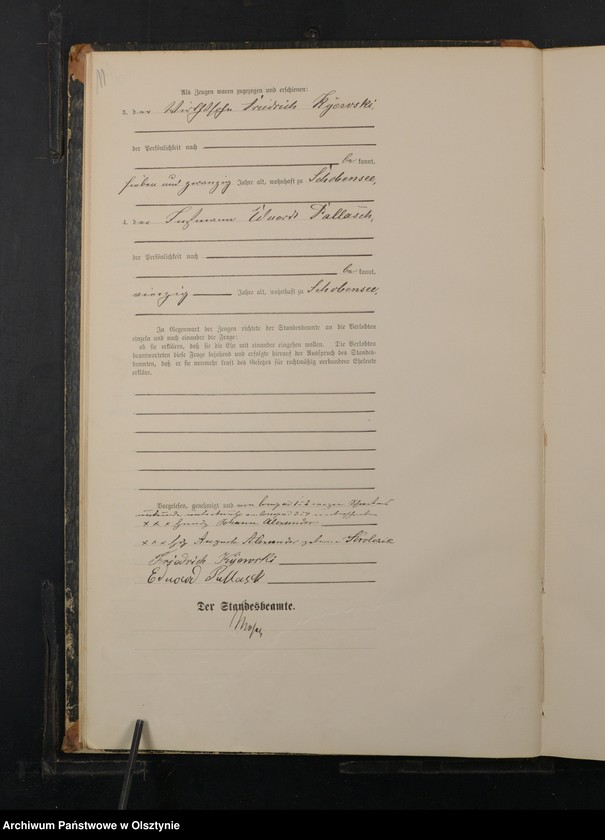 Als Zeugen waren zugezogen und erschienen:
3. der Wirthssohn Friedrich Kijewski
der Persönlichkeit nach
be kannt,
sieben und zwanzig Jahre alt, wohnhaft zu Schobensee,
4. der Eduard Pallasch,
der Persönlichkeit nach
be kannt,
vierzig Jahre alt, wohnhaft zu Schobensee,
In Gegenwart der Zeugen richtete der Standesbeamte an die Verlobten
einzeln und nach einander die Frage:
ob sie erklären, daß sie die Ehe mit einander eingehen wollen. Die Verlobten
beantworteten diese Frage bejahend und erfolgte hierauf der Ausspruch des Standes-
beamten, daß er sie nunmehr kraft des Gesetzes für rechtmäßig verbundene Eheleute
erkläre.
Vorgelesen, genehmigt und von wegen
+ + + Johann Alexander
+ + + Auguste Alexander geborene
Friedrich Kijewski
Eduard Pallasch
Der Standesbeamte.
Archiwum Państwowe w Olsztynie